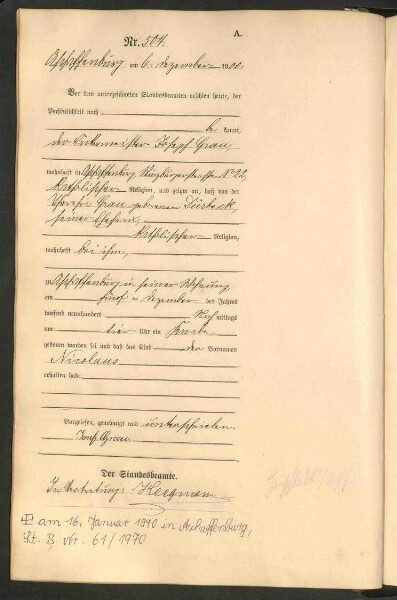 A.
Nr. 504.
Aschaffenburg am 6. Dezember 1900.
Vor dem unterzeichneten Standesbeamten erschien heute, der
Persönlichkeit nach
be kannt,
Joseph Grau,
wohnhaft in Aschaffenburg, Würzburgerstrasse No 22,
katholischer Religion, und zeigte an, daß von der
Grau, geborenen Dürbeck,
seiner Ehefrau,
katholischer Religion,
wohnhaft bei ihm,
zu Aschaffenburg in seiner Wohnung,
am fünften Dezember des Jahres
tausend neunhundert Nach mittags
um vier Uhr ein Knabe
geboren worden sei und daß das Kind den Vornamen
Nicolaus
erhalten habe
Vorgelesen, genehmigt und unterschrieben.
Josef Grau
Der Standesbeamte.
In Vertretung:
am 16. Januar 1970 in Aschaffenburg,
St. B. Nr. 61/1970